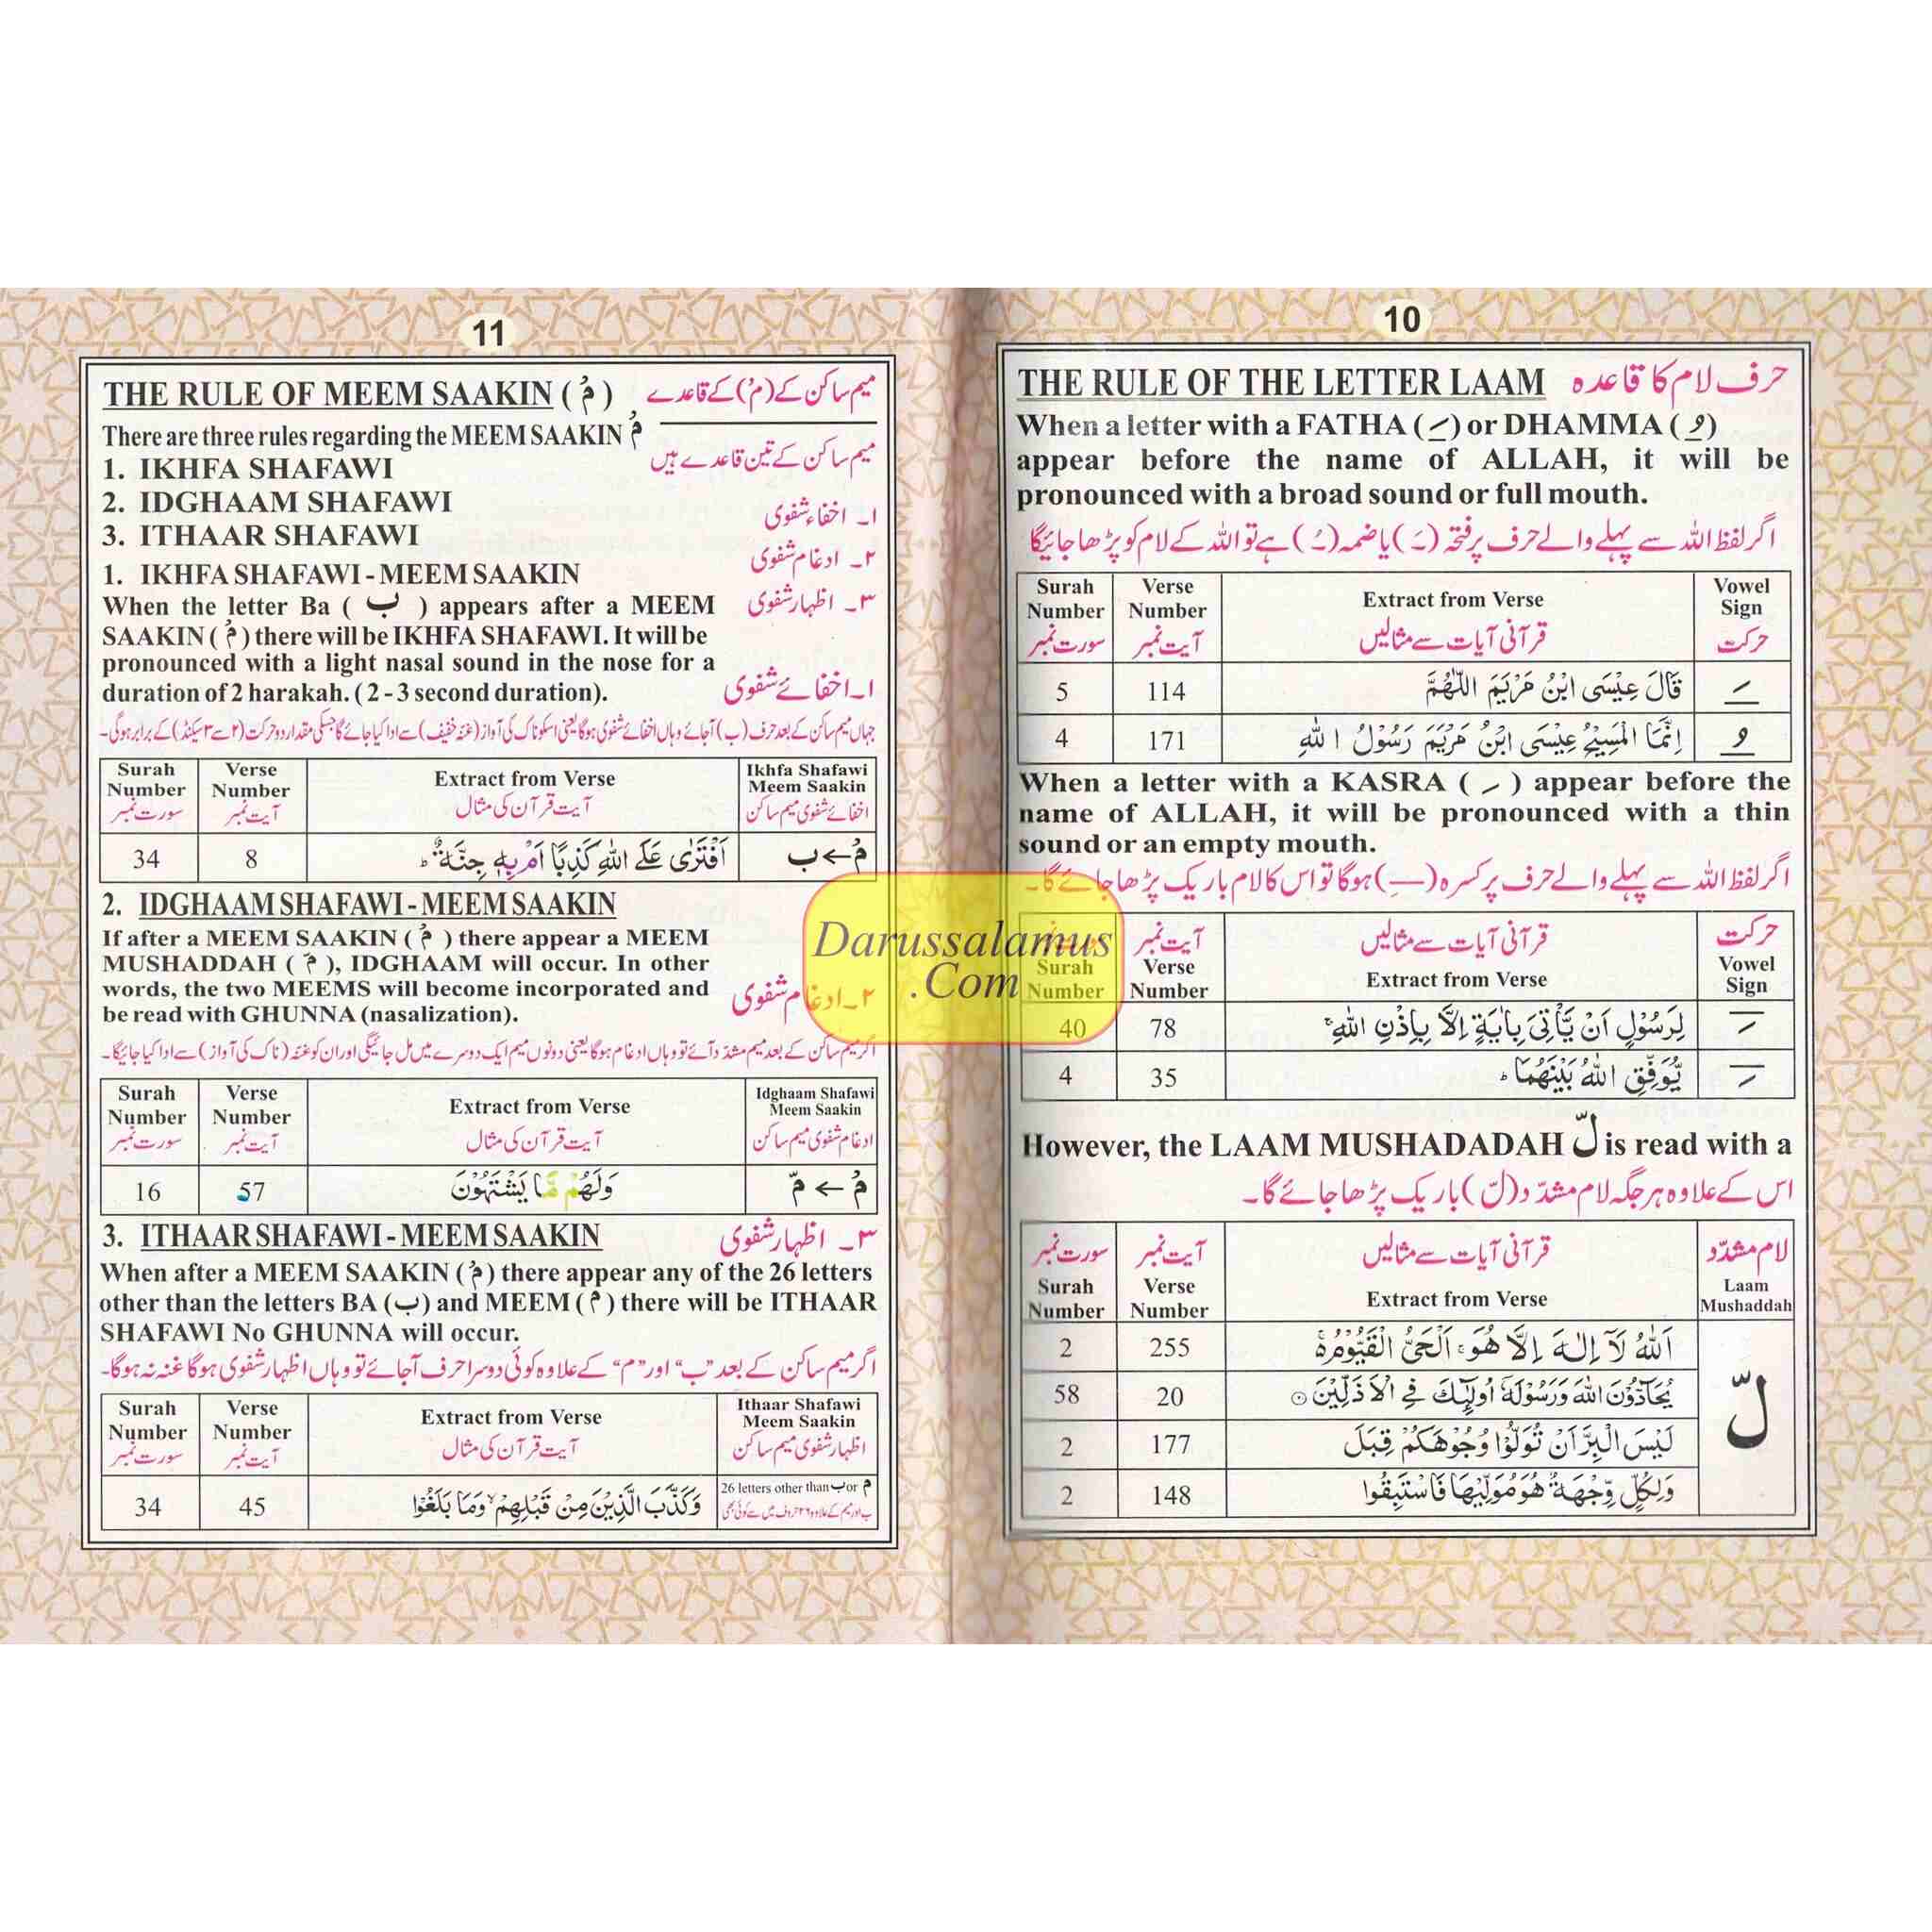 10
THE RULE OF THE LETTER LAAM حرف لام کا قاعدہ
When a letter with a FATHA ( ـَ ) or DHAMMA ( ـُ )
appear before the name of ALLAH, it will be
pronounced with a broad sound or full mouth.
اگر لفظ اللہ سے پہلے والے حرف پر فتحہ (ـَ) یا ضمہ (ـُ) ہے تو اللہ کے لام کو پڑھا جائیگا
Surah Number سورت نمبر | Verse Number آیت نمبر | Extract from Verse قرآنی آیات سے مثالیں | Vowel Sign حرکت
5 | 114 | قَالَ عِيْسَى ابْنُ مَرْيَمَ اللّٰهُمَّ | ـَ
4 | 171 | اِنَّمَا الْمَسِيْحُ عِيْسَى ابْنُ مَرْيَمَ رَسُوْلُ اللّٰهِ | ـُ
When a letter with a KASRA ( ـِ ) appear before the
name of ALLAH, it will be pronounced with a thin
sound or an empty mouth.
اگر لفظ اللہ سے پہلے والے حرف پر کسرہ (ـِ) ہوگا تو اس کا لام باریک پڑھا جائے گا۔
Surah Number | آیت نمبر Verse Number | قرآنی آیات سے مثالیں Extract from Verse | حرکت Vowel Sign
40 | 78 | لِرَسُوْلٍ اَنْ يَّاْتِيَ بِاٰيَةٍ اِلَّا بِاِذْنِ اللّٰهِ ۚ | ـِ
4 | 35 | يُّوَفِّقِ اللّٰهُ بَيْنَهُمَا ؕ | ـِ
However, the LAAM MUSHADADAH لّ is read with a
اس کے علاوہ ہر جگہ لام مشدد (لّ) باریک پڑھا جائے گا۔
سورت نمبر Surah Number | آیت نمبر Verse Number | قرآنی آیات سے مثالیں Extract from Verse | لام مشدّد Laam Mushaddah
2 | 255 | اَللّٰهُ لَاۤ اِلٰهَ اِلَّا هُوَ ۚ اَلْحَىُّ الْقَيُّوْمُ ۚ | لّ
58 | 20 | يُحَآدُّوْنَ اللّٰهَ وَرَسُوْلَهٗۤ اُولٰٓئِكَ فِى الْاَذَلِّيْنَ
2 | 177 | لَيْسَ الْبِرَّ اَنْ تُوَلُّوْا وُجُوْهَكُمْ قِبَلَ
2 | 148 | وَلِكُلٍّ وِّجْهَةٌ هُوَ مُوَلِّيْهَا فَاسْتَبِقُوا
11
THE RULE OF MEEM SAAKIN ( مْ ) میم ساکن کے (مْ) کے قاعدے
There are three rules regarding the MEEM SAAKIN مْ
میم ساکن کے تین قاعدے ہیں
1. IKHFA SHAFAWI
2. IDGHAAM SHAFAWI
3. ITHAAR SHAFAWI
۱۔ اخفاء شفوی
۲۔ ادغام شفوی
۳۔ اظہار شفوی
1. IKHFA SHAFAWI - MEEM SAAKIN
When the letter Ba ( ب ) appears after a MEEM
SAAKIN ( مْ ) there will be IKHFA SHAFAWI. It will be
pronounced with a light nasal sound in the nose for a
duration of 2 harakah. ( 2 - 3 second duration).
۱۔ اخفائے شفوی
جہاں میم ساکن کے بعد حرف (ب) آجائے وہاں اخفائے شفوی ہوگا یعنی اسکو ناک کی آواز (غنہ خفیف) سے ادا کیا جائے گا جسکی مقدار دو حرکت (۲ سے ۳ سیکنڈ) کے برابر ہوگی۔
Surah Number سورت نمبر | Verse Number آیت نمبر | Extract from Verse آیت قرآن کی مثال | Ikhfa Shafawi Meem Saakin اخفائے شفوی میم ساکن
34 | 8 | اَفْتَرٰى عَلَى اللّٰهِ كَذِبًا اَمْ بِهٖ جِنَّةٌ ؕ | مْ ← ب
2. IDGHAAM SHAFAWI - MEEM SAAKIN
If after a MEEM SAAKIN ( مْ ) there appear a MEEM
MUSHADDAH ( مّ ), IDGHAAM will occur. In other
words, the two MEEMS will become incorporated and
be read with GHUNNA (nasalization).
۲۔ ادغام شفوی
اگر میم ساکن کے بعد میم مشدّد آئے تو وہاں ادغام ہوگا یعنی دونوں میم ایک دوسرے میں مل جائیگی اور ان کو غنہ (ناک کی آواز) سے ادا کیا جائیگا۔
Surah Number سورت نمبر | Verse Number آیت نمبر | Extract from Verse آیت قرآن کی مثال | Idghaam Shafawi Meem Saakin ادغام شفوی میم ساکن
16 | 57 | وَلَهُمْ مَّا يَشْتَهُوْنَ | مْ ← مّ
3. ITHAAR SHAFAWI - MEEM SAAKIN ۳۔ اظہار شفوی
When after a MEEM SAAKIN ( مْ ) there appear any of the 26 letters
other than the letters BA (ب) and MEEM ( م ) there will be ITHAAR
SHAFAWI No GHUNNA will occur.
اگر میم ساکن کے بعد ”ب“ اور ”م“ کے علاوہ کوئی دوسرا حرف آجائے تو وہاں اظہار شفوی ہوگا غنہ نہ ہوگا۔
Surah Number سورت نمبر | Verse Number آیت نمبر | Extract from Verse آیت قرآن کی مثال | Ithaar Shafawi Meem Saakin اظہار شفوی میم ساکن
34 | 45 | وَكَذَّبَ الَّذِيْنَ مِنْ قَبْلِهِمْ ۙ وَمَا بَلَغُوْا | 26 letters other than ب or م
Darussalamus
.Com